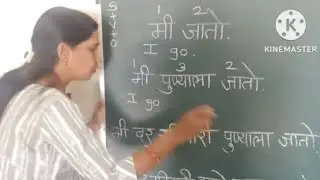 S+V+O
1 2
मी जातो.
I go.
1 3 2
मी पुण्याला जातो.
I go
मी पुण्याला जातो.
KINEMASTER